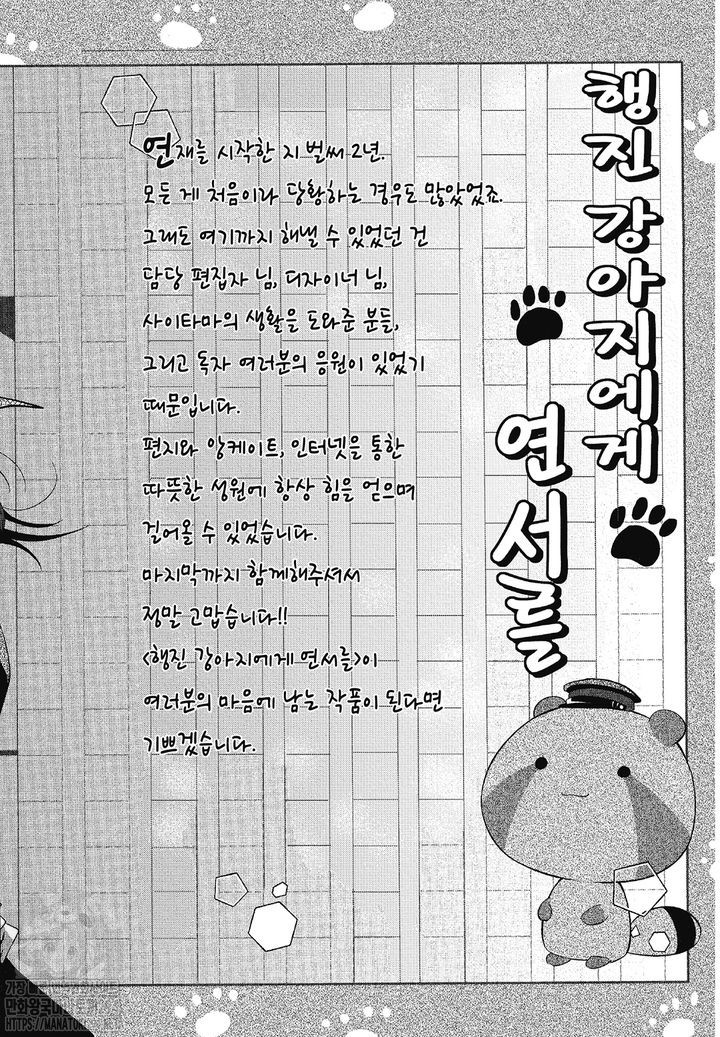 행진 강아지에게
연서를
연재를 시작한 지 벌써 2년.
모든 게 처음이라 당황하는 경우도 많았었죠.
그래도 여기까지 해낼 수 있었던 건
담당 편집자 님, 디자이너 님,
사이타마의 생활을 도와준 분들,
그리고 독자 여러분의 응원이 있었기
때문입니다.
편지와 앙케이트, 인터넷을 통한
따뜻한 성원에 항상 힘을 얻으며
걸어올 수 있었습니다.
마지막까지 함께해주셔서
정말 고맙습니다!!
<행진 강아지에게 연서를>이
여러분의 마음에 남는 작품이 된다면
기쁘겠습니다.
가장
만화왕국
HTTPS://MANATO
.NET